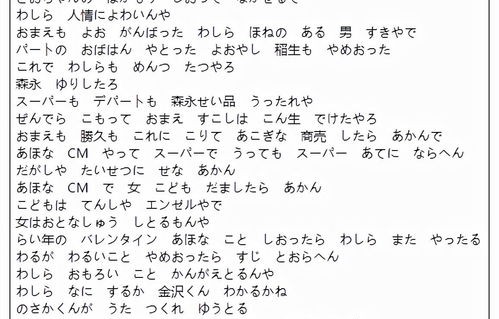 わしら　人情によわいんや
おまえも　よお　がんばった　わしら　ほねの　ある　男　すきやで
パートの　おばはん　やとった　よおやし　稲生も　やめおった
これで　わしらも　めんつ　たつやろ
森永　ゆりしたろ
スーパーも　デパートも　森永せい品　うったれや
ぜんでら　こもって　おまえ　すこしは　こん生　でけたやろ
おまえも　勝久も　これに　こりて　あこぎな　商売　したら　あかんで
あほな　CM　やって　スーパーで　うっても　スーパー　あてに　ならへん
だがしや　たいせつに　せな　あかん
あほな　CM　で　女　こども　だましたら　あかん
こどもは　てんしや　エンゼルやで
女はおとなしゅう　しとるもんや
らい年の　バレンタイン　あほな　こと　しおったら　わしら　また　やったる
わるが　わるいこと　やめおったら　すじ　とおらへん
わしら　おもろい　こと　かんがえとるんや
わしら　なに　するか　金沢くん　わかるかね
のさかくんが　うた　つくれ　ゆうとる